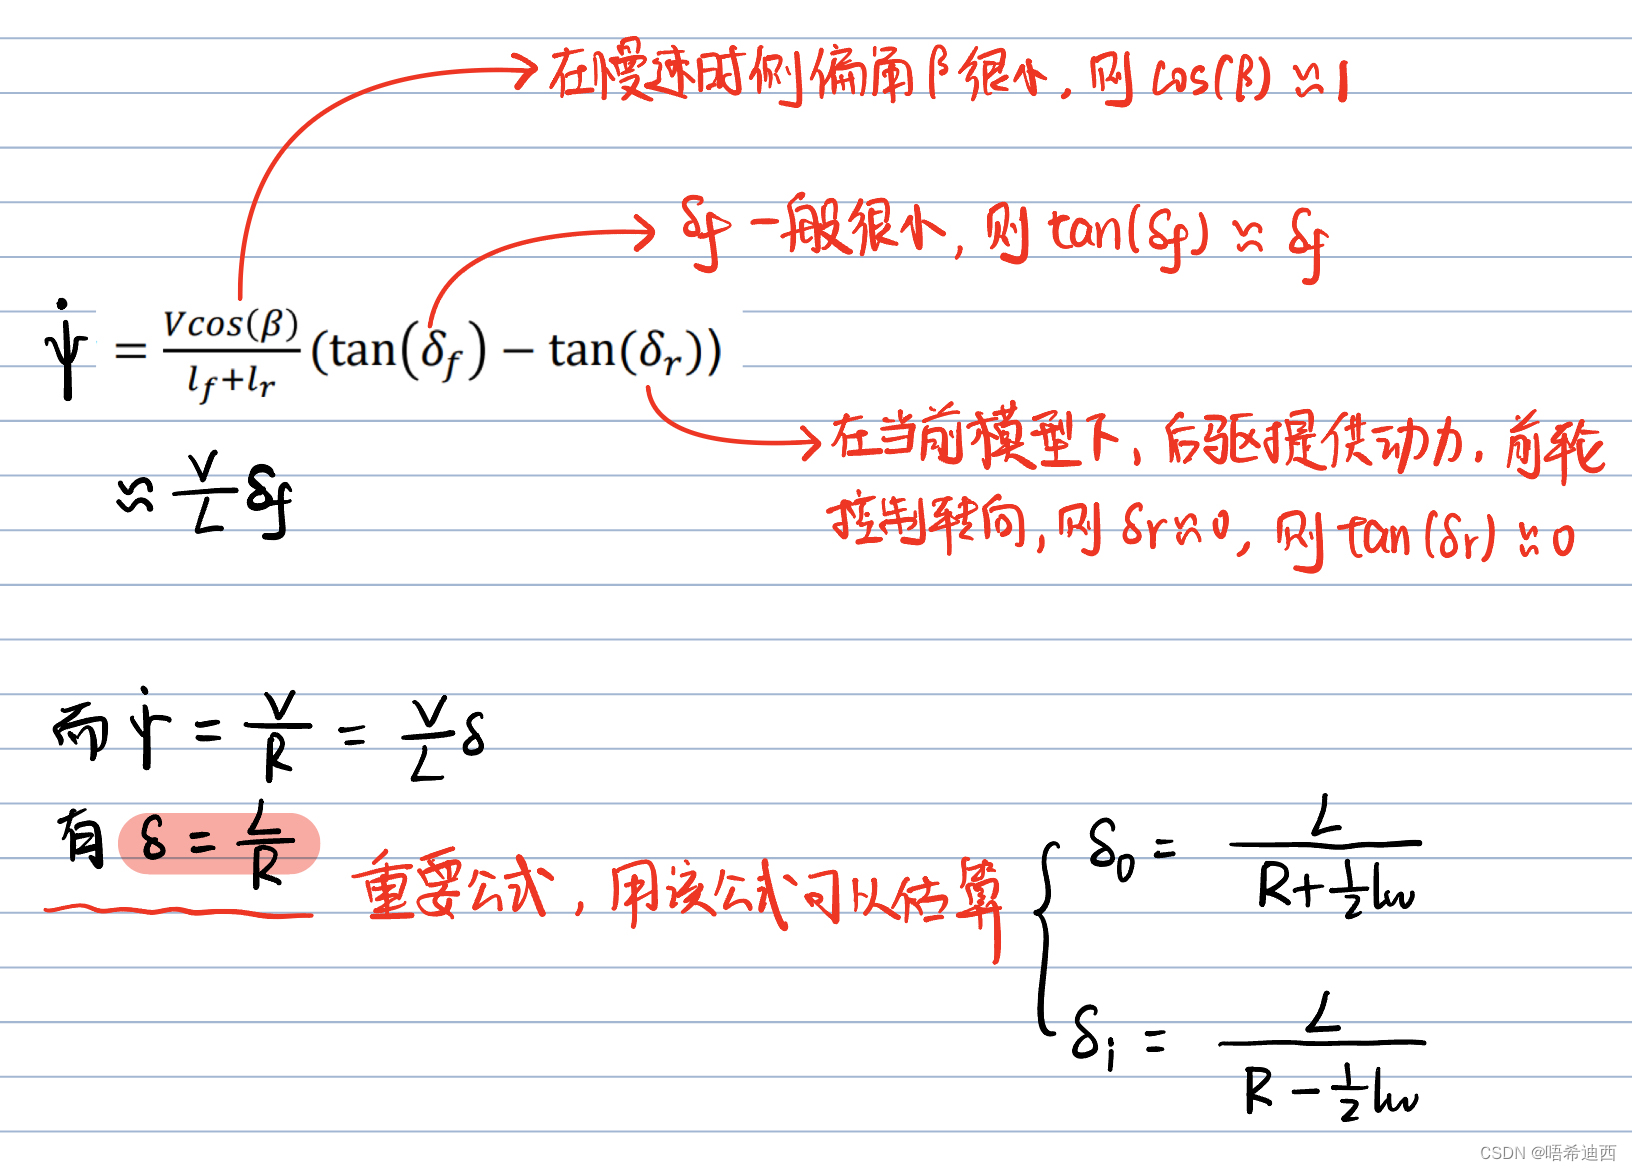 在慢速时侧偏角β很小,则cos(β)≈1
δf一般很小,则tan(δf)≈δf
ψ̇ = Vcos(β)/(lf+lr) (tan(δf) − tan(δr))
在当前模型下、后驱提供动力.前轮
控制转向,则δr≈0,则tan(δr)≈0
≈ V/L δf
而 ψ̇ = V/R = V/L δ
有 δ = L/R
重要公式,用该公式可以估算
δo = L/(R+½lw)
δi = L/(R−½lw)
CSDN @唔希迪西